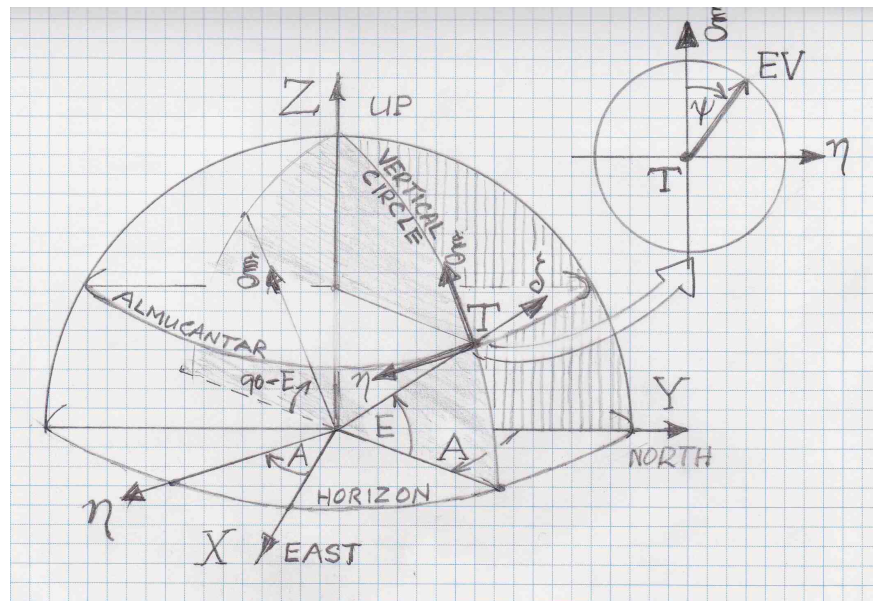 ξ
EV
ψ
η
T
Z UP
VERTICAL
CIRCLE
ξ
ξ
ζ
T
ALMUCANTAR
η
90-E
E
A
Y
NORTH
A
HORIZON
η
X EAST